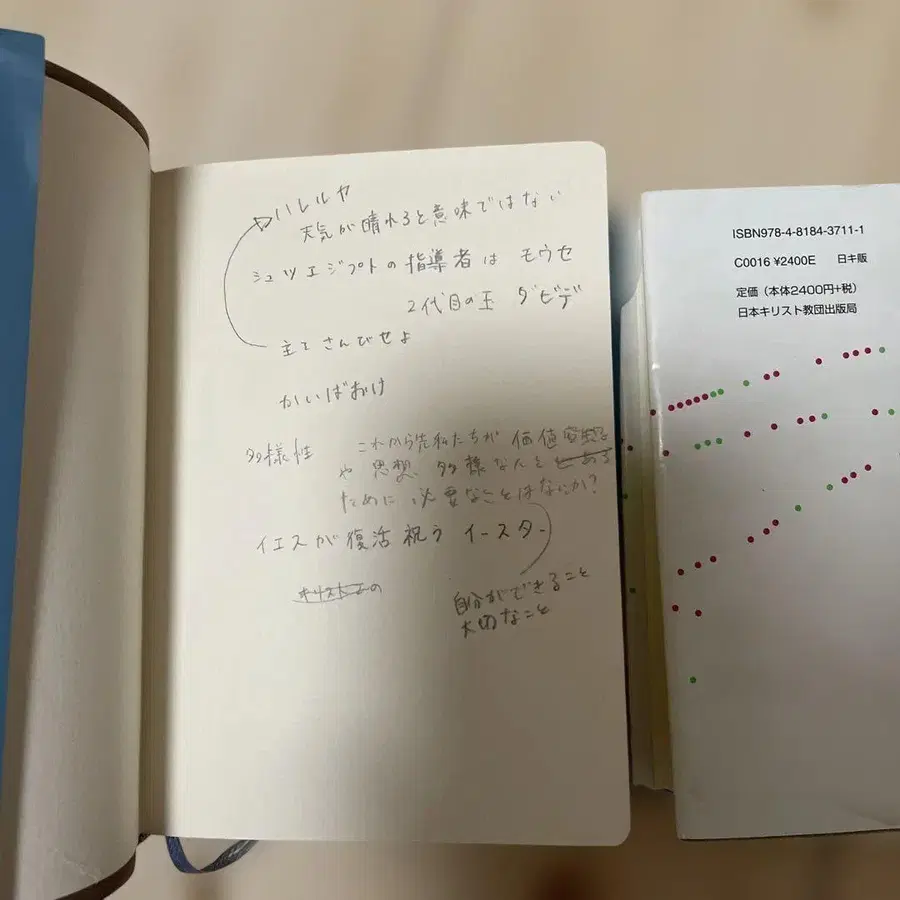 ハレルヤ
天気が晴れると意味ではない
シュツエジプトの指導者は モウセ
2代目の王 ダビデ
主てさんびせよ
かいばおけ
多様性 これから先私たちが 価値
や 思想、多様なんと
ために 必要なことはなにか?
イエスが復活祝う イースター
の
自分ができること
大切なこと
ISBN978-4-8184-3711-1
C0016 ¥2400E 日キ販
定価(本体2400円+税)
日本キリスト教団出版局